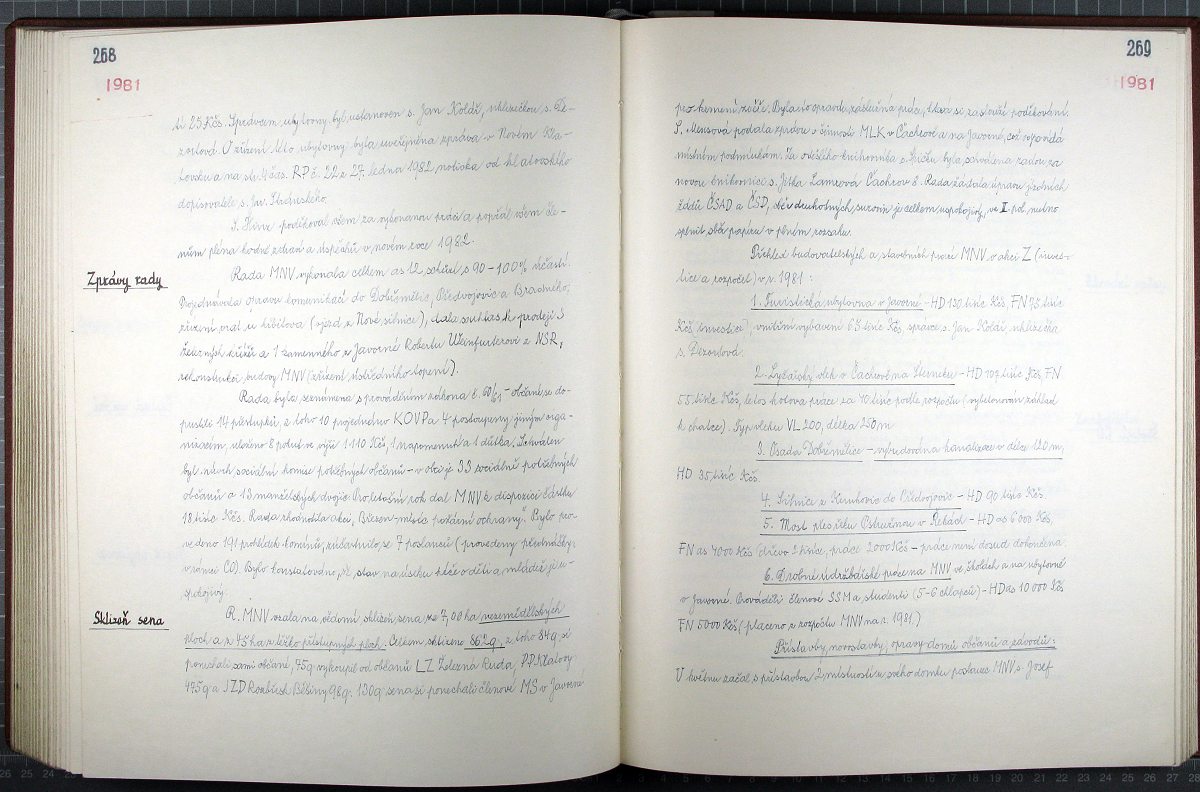 268
1981
ti 25 Kčs. Správcem ubytovny byl ustanoven s. Jan Kolář, uklizečkou s. De-
zortová. O zřízení této ubytovny byla uveřejněna zpráva v Novém Kla-
tovsku a na str. 4 čas. RP č. 22 z 27. ledna 1982, notická od klatovského
dopisovatele s. Jar.
S. poděkoval všem za vykonanou práci a popřál všem čle-
nům plena hodně zdraví a úspěchů v novém roce 1982.
Zprávy rady
Rada MNV vykonala celkem as 12 schůzí s 90-100% účastí.
Projednávala opravu komunikací do Dobřemělic, Předvojovic a Bradného,
zřízení vrat u hřbitova (vjezd z Nové silnice), dala souhlas k prodeji 3
železných křížů a 1 kamenného z Javorné Robertu Weinfurterovi z NSR,
rekonstrukci budovy MNV (zřízení ústředního topení).
Rada byla seznámena s prováděním zákona č. 60/61 - občané se do-
pustili 14 přestupků, z toho 10 projednáno KOVP a 4 postoupeny jiným orga-
nizacím, uloženo 8 pokut ve výši 1110 Kčs, 1 napomenutí a 1 důtka. Schválen
byl návrh sociální komise potřebných občanů - v obci je 33 sociálně potřebných
občanů a 13 manželských dvojic. Pro letošní rok dal MNV k dispozici částku
18 tisíc Kčs. Rada zhodnotila akci "Březen - měsíc požární ochrany". Bylo pro-
vedeno 191 prohlídek komínů, zúčastnilo se 7 poslanců (provedeny přednášky
v rámci CO). Bylo konstatováno, že stav na úseku péče o děti a mládež je u-
spokojivý.
Sklizeň sena
R. MNV vzala na vědomí sklizeň sena ze 7,00 ha nezemědělských
ploch a z 45 ha těžko přístupných ploch. Celkem sklizeno 862 q, z toho 84 q si
ponechali sami občané, 75 q vykoupil od občanů LZ Železná Ruda, Klatovy
475 q a JZD Rozkvět Běšiny 98 q. 130 q sena si ponechali členové MS v Javorné
269
1981
pro krmení zvěře. Byla to opravdu záslužná práce, která si zaslouží poděkování.
S. podala zprávu o činnosti MLK v Čachrově a na Javorné, což odpovídá
místním podmínkám. Za odešlého knihovníka s. byla schválena radou za
novou knihovnici s. Jitka Čachrov 8. Rada žádala úpravu jízdních
řádů ČSAD a ČSD, sběr druhotných surovin je celkem uspokojivý, ve I. pol. nutno
splnit sběr papíru v plném rozsahu.
Přehled budovatelských a stavebních prací MNV v akci Z (inves-
tice a rozpočet) v r. 1981:
1. Turistická ubytovna v Javorné - HD 130 tisíc Kčs FN 75 tisíc
Kčs investice, vnitřní vybavení 63 tisíc Kčs, správce s. Jan Kolář uklizečka
s. Dezortová.
2. Lyžařský vlek v Čachrově na - HD 109 tisíc Kčs FN
55 tisíc Kčs, letos hotova práce za 40 tisíc podle rozpočtu (vybetonován základ
k chatce). Typ vleku VL 200, délka 250 m
3. Osada Dobřemělice - vybudována kanalizace v délce 120 m,
HD 35 tisíc Kčs.
4. Silnice z Kunkovic do Předvojovic - HD 90 tisíc Kčs.
5. Most přes řeku Ostružnou v Řekách - HD as 6 000 Kčs,
FN as 4000 Kčs (dřevo 2 tisíce, práce 2000 Kčs - práce není dosud dokončena.
6. Drobné údržbářské práce na MNV ve školách a na ubytovně
v Javorné. Prováděli členové SSM a studenti (5-6 chlapců) - HD as 10 000 Kčs
FN 5000 Kčs (placeno z rozpočtu MNV na r. 1981.)
Přístavby, novostavby, opravy domů občanů a závodů:
V květnu začal s přístavbou 2 místností u svého domku poslanec MNV s. Josef